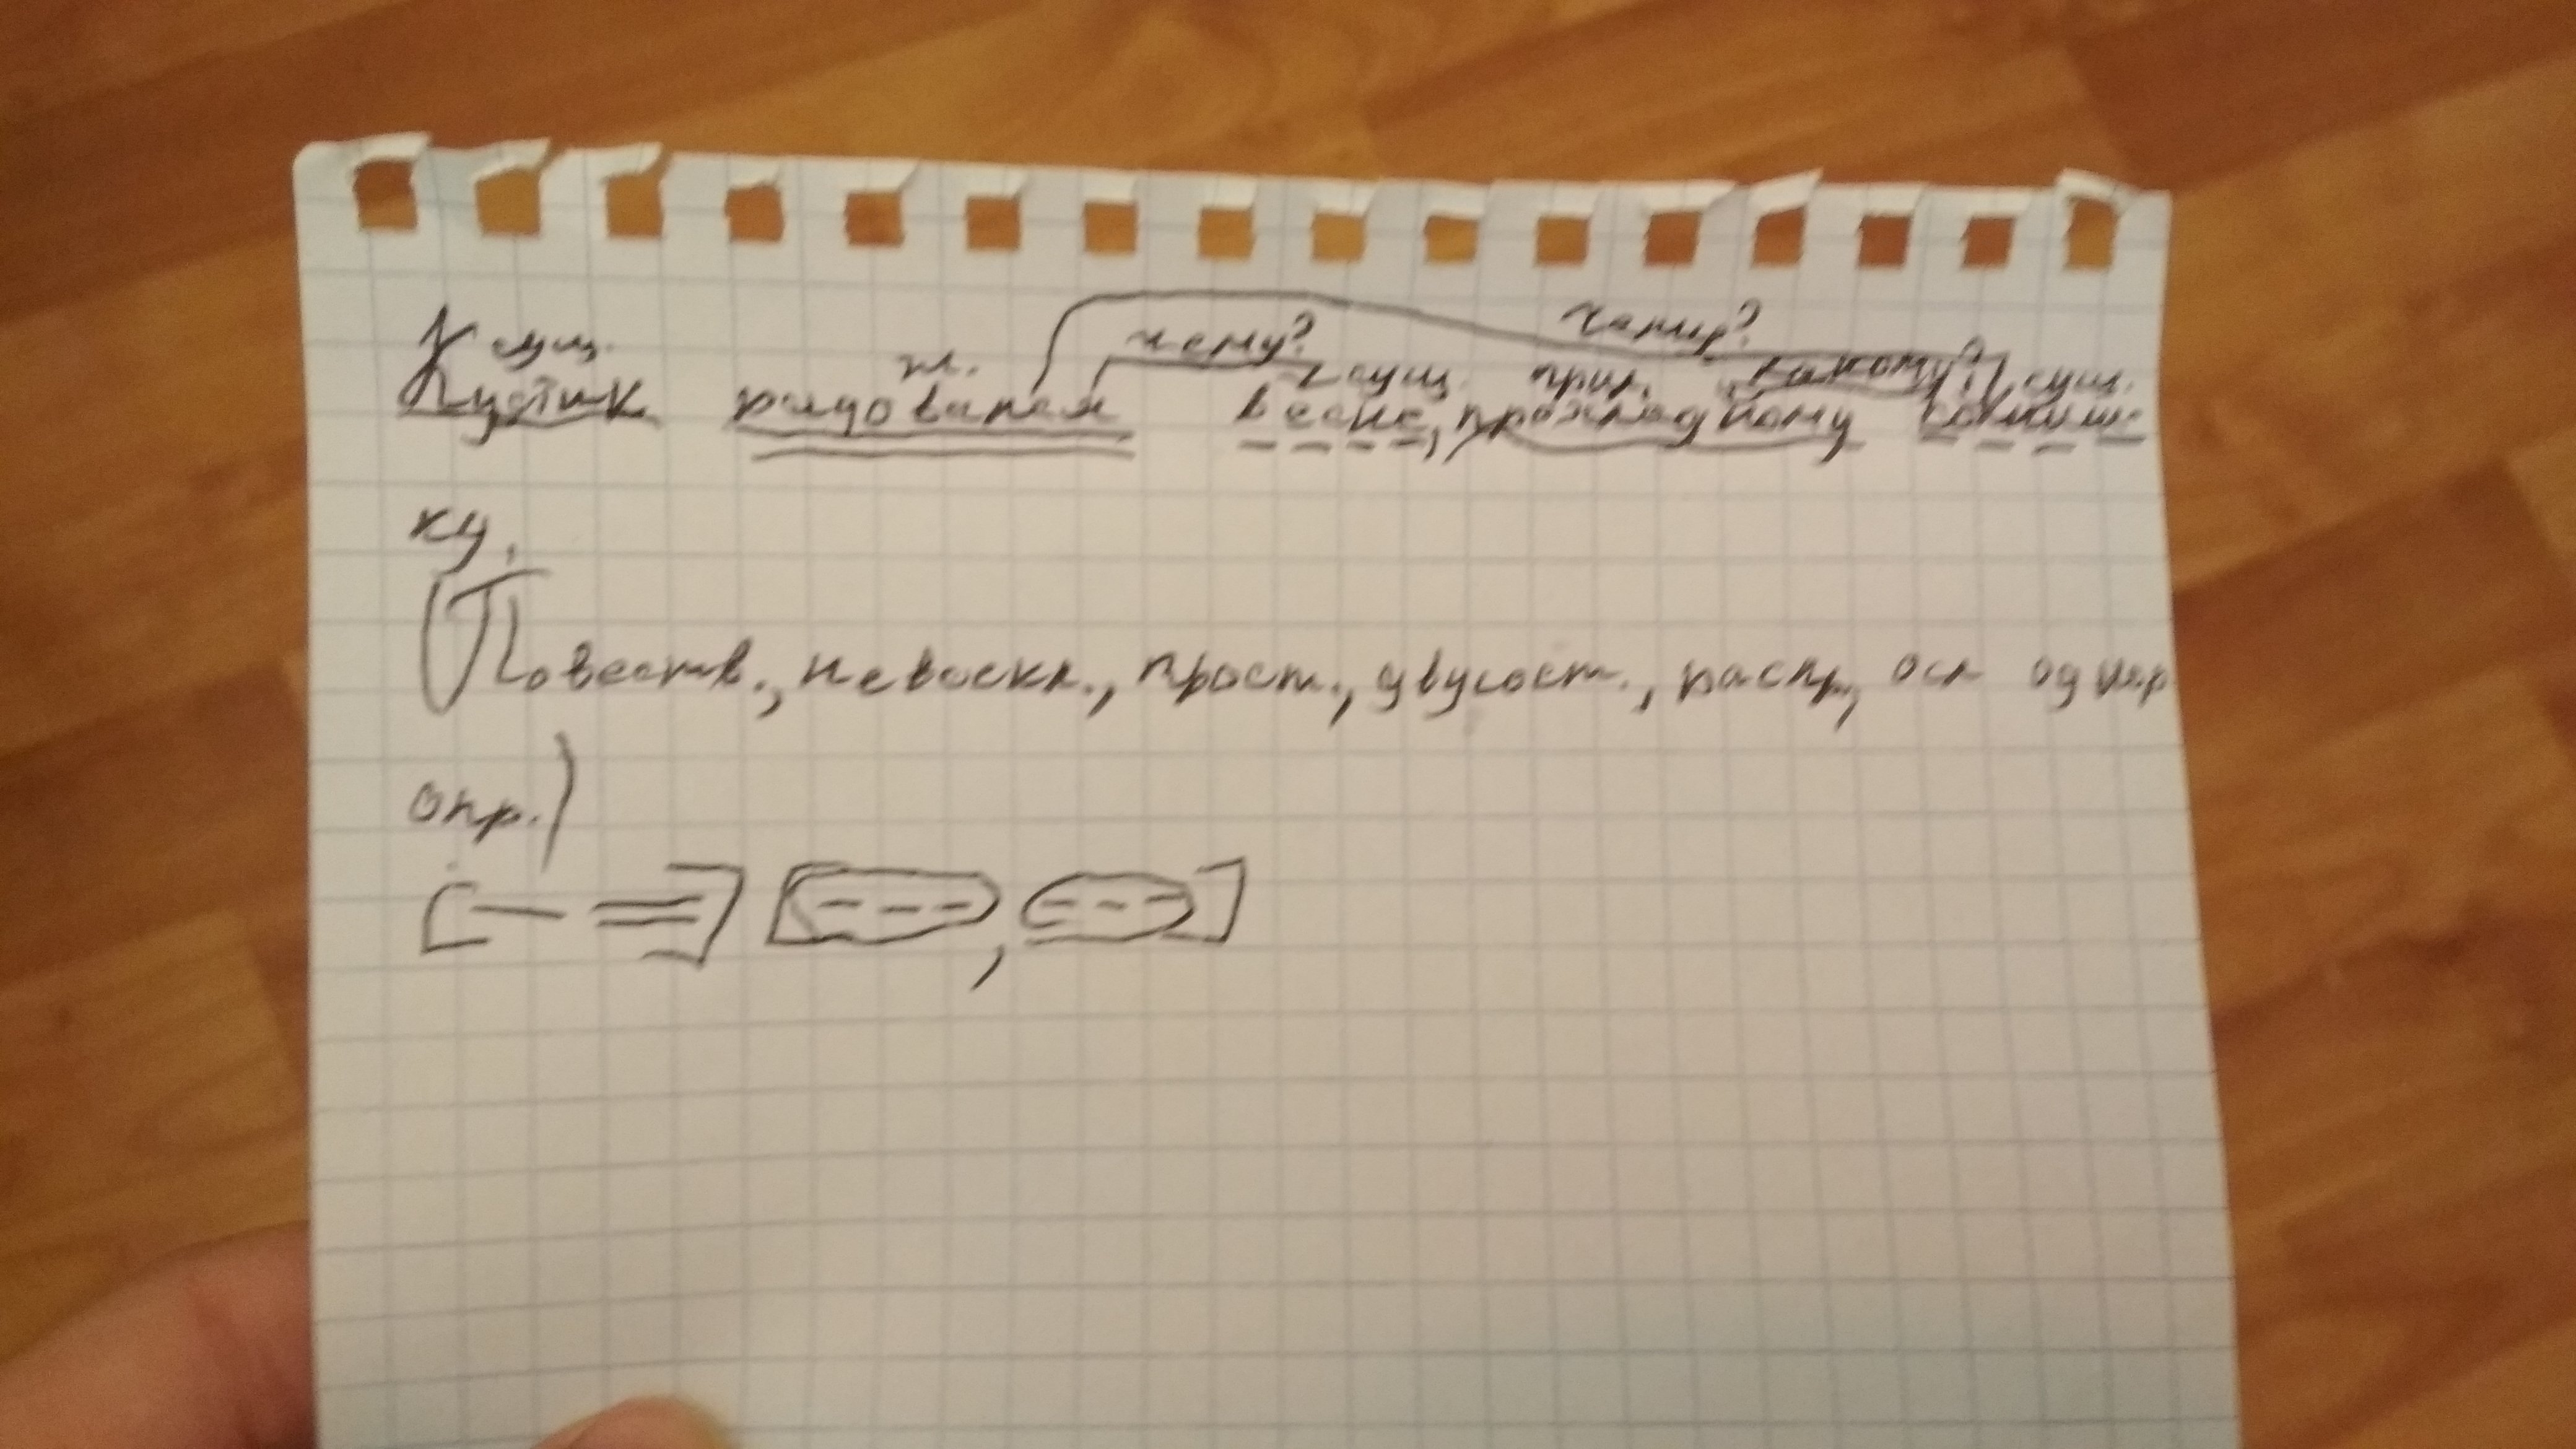 чему?
сущ. гл. чему? сущ. прил. какому? сущ.
Кустик радовался весне, прохладному солныш-
ку.
(Повеств., невоскл., прост., двусост., распр, осл однор
опр.)
[— =] [---, ---]